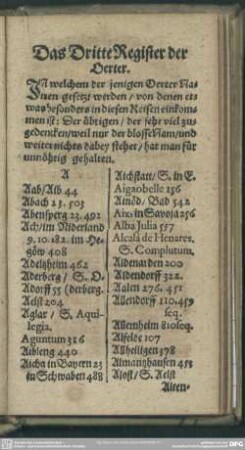 Das Dritte Register der
Oerter.
IN welchem der jenigen Oerter Na-
men gesetzt werden / von denen et-
was besonders in diesen Reisen einkom-
men ist: Der übrigen / der sehr viel zu-
gedencken / weil nur der blosse Nam / und
weiter nichts dabey stehet / hat man für
unnöhtig gehalten.
A
Aab / Alb 44
Abach 23. 503
Abensperg 23. 492
Ach / im Niderland
9. 10. 182. im He-
göw 408
Adelzheim 462
Aderberg / S. O-
Adorff 55 (derberg.
Aelst 204
Aglar / S. Aqui-
legia.
Aguntum 316
Aibling 440
Aicha in Bayern 23
in Schwaben 488
Aichstatt / S. in E.
Aigaobelle 256
Ainöd / Bad 542
Aix, in Savoja 256
Alba Julia 557
Alcalà de Henares,
S. Complutum,
Aldenau den 200
Aldendorff 322.
Aalen 276. 451
Allendorff 110. 459
seq.
Allenheim 810 seq.
Alfelde 107
Allheiligen 378
Almantzhausen 455
Alost / S. Aelst
Alten-